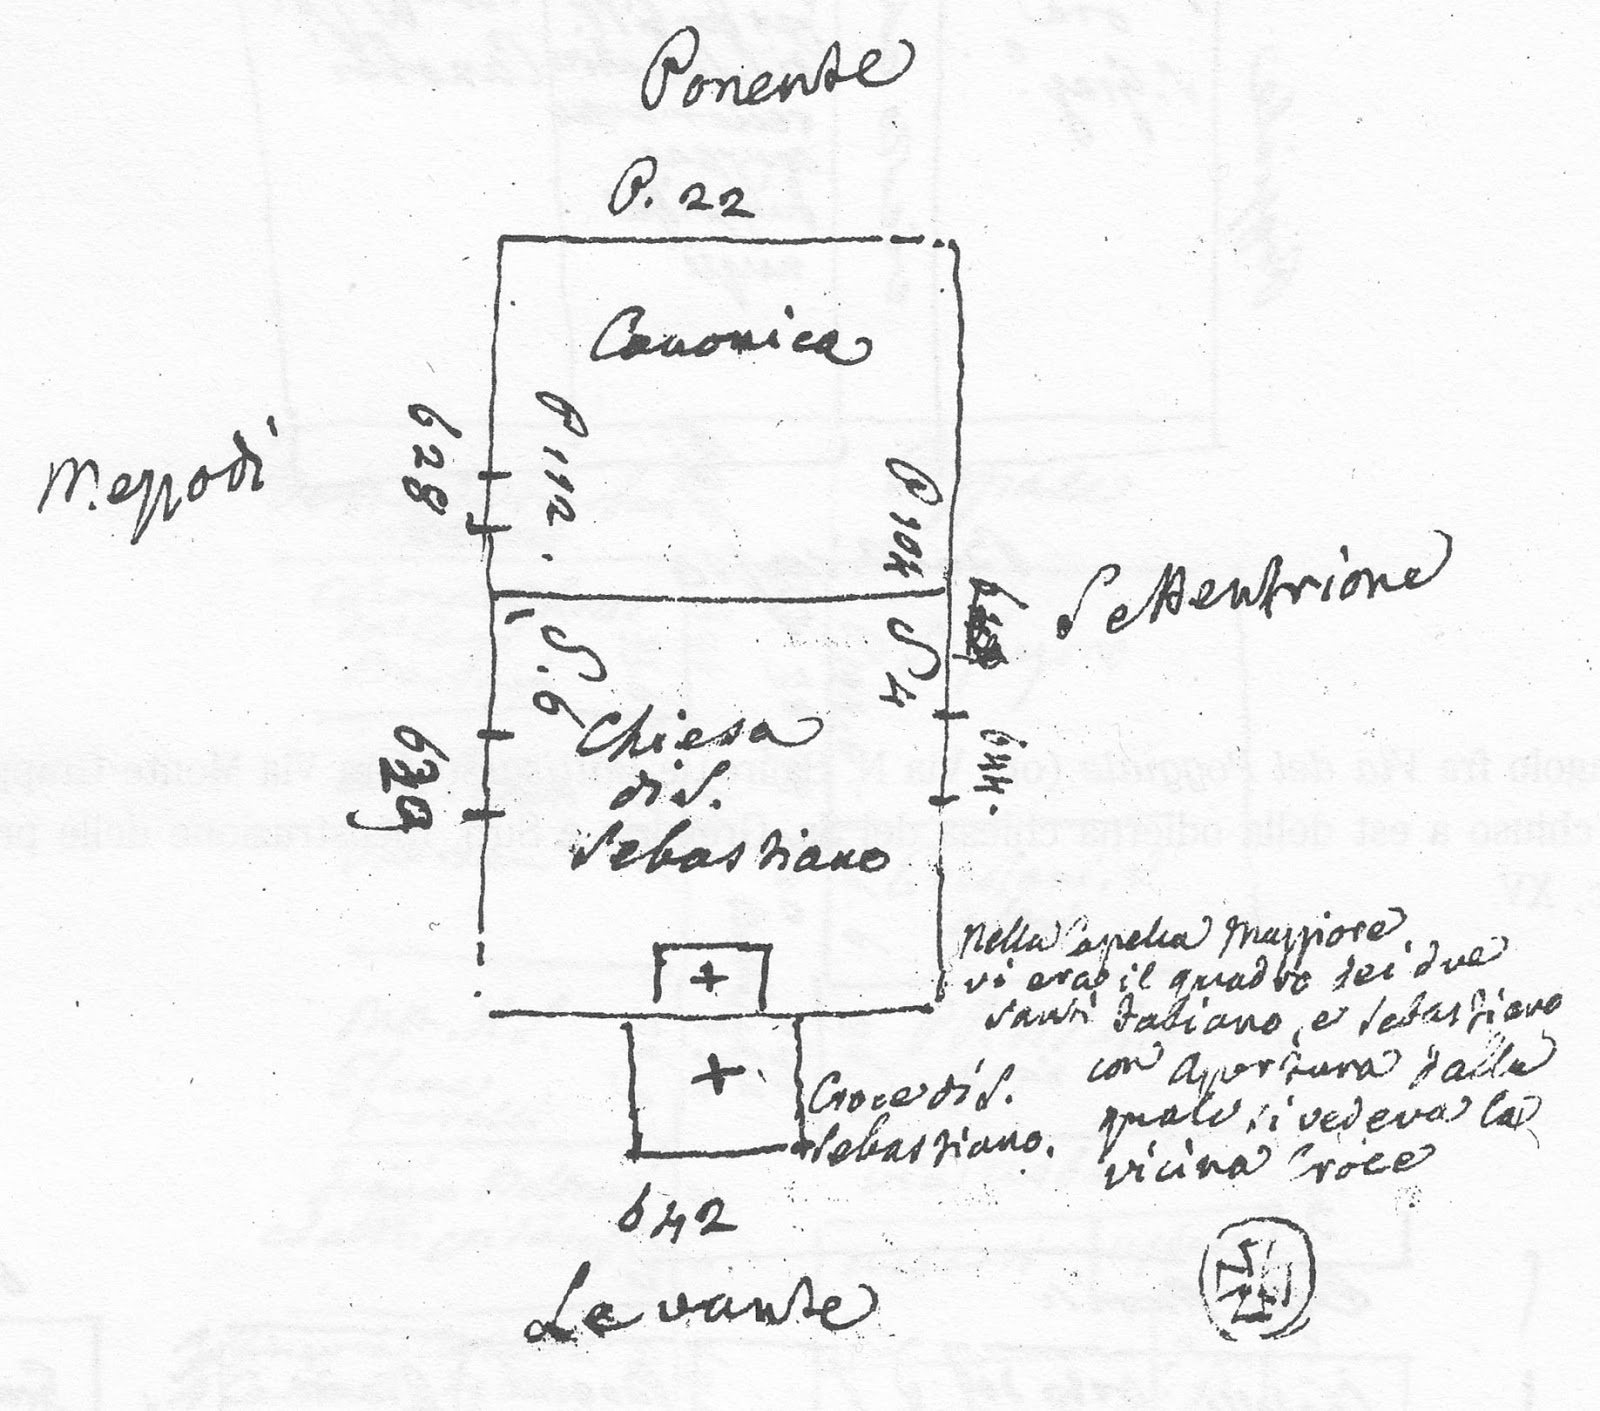 Ponente
P. 22
Canonica
Mezzodì
628
P 112.
P 104
Settentrione
S. 6
S 4
629
644.
Chiesa
di S.
Sebastiano
Nella Capella Maggiore
vi era il quadro dei due
Santi Fabiano, e Sebastiano
con Apertura dalla
quale si vedeva la
vicina Croce
+
+
Croce di S.
Sebastiano.
642
Levante